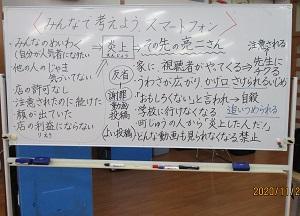 <みんなで考えよう、スマートフォン>
・みんなのめいわく
(自分が人気者になりたい)
・他の人のじゃま
気づいてない
・店の許可なし
・注意されたのに続けた
・顔が出ていた
・店の利益にならない
りえき
→炎上→その先の亮二さん
反省
謝罪動画投稿
(より投稿)
注意される
・家に視聴者がやってくる→先生に
・うわさが広がり、かげ口さけられるいじめ
・「おもしろくない」と言われ→自殺
・学校に行けなくなる 追いつめられる
・町じゅうの人から「炎上した人だ!」
・どんな動画も見られなくなる 禁止
2020/11/2